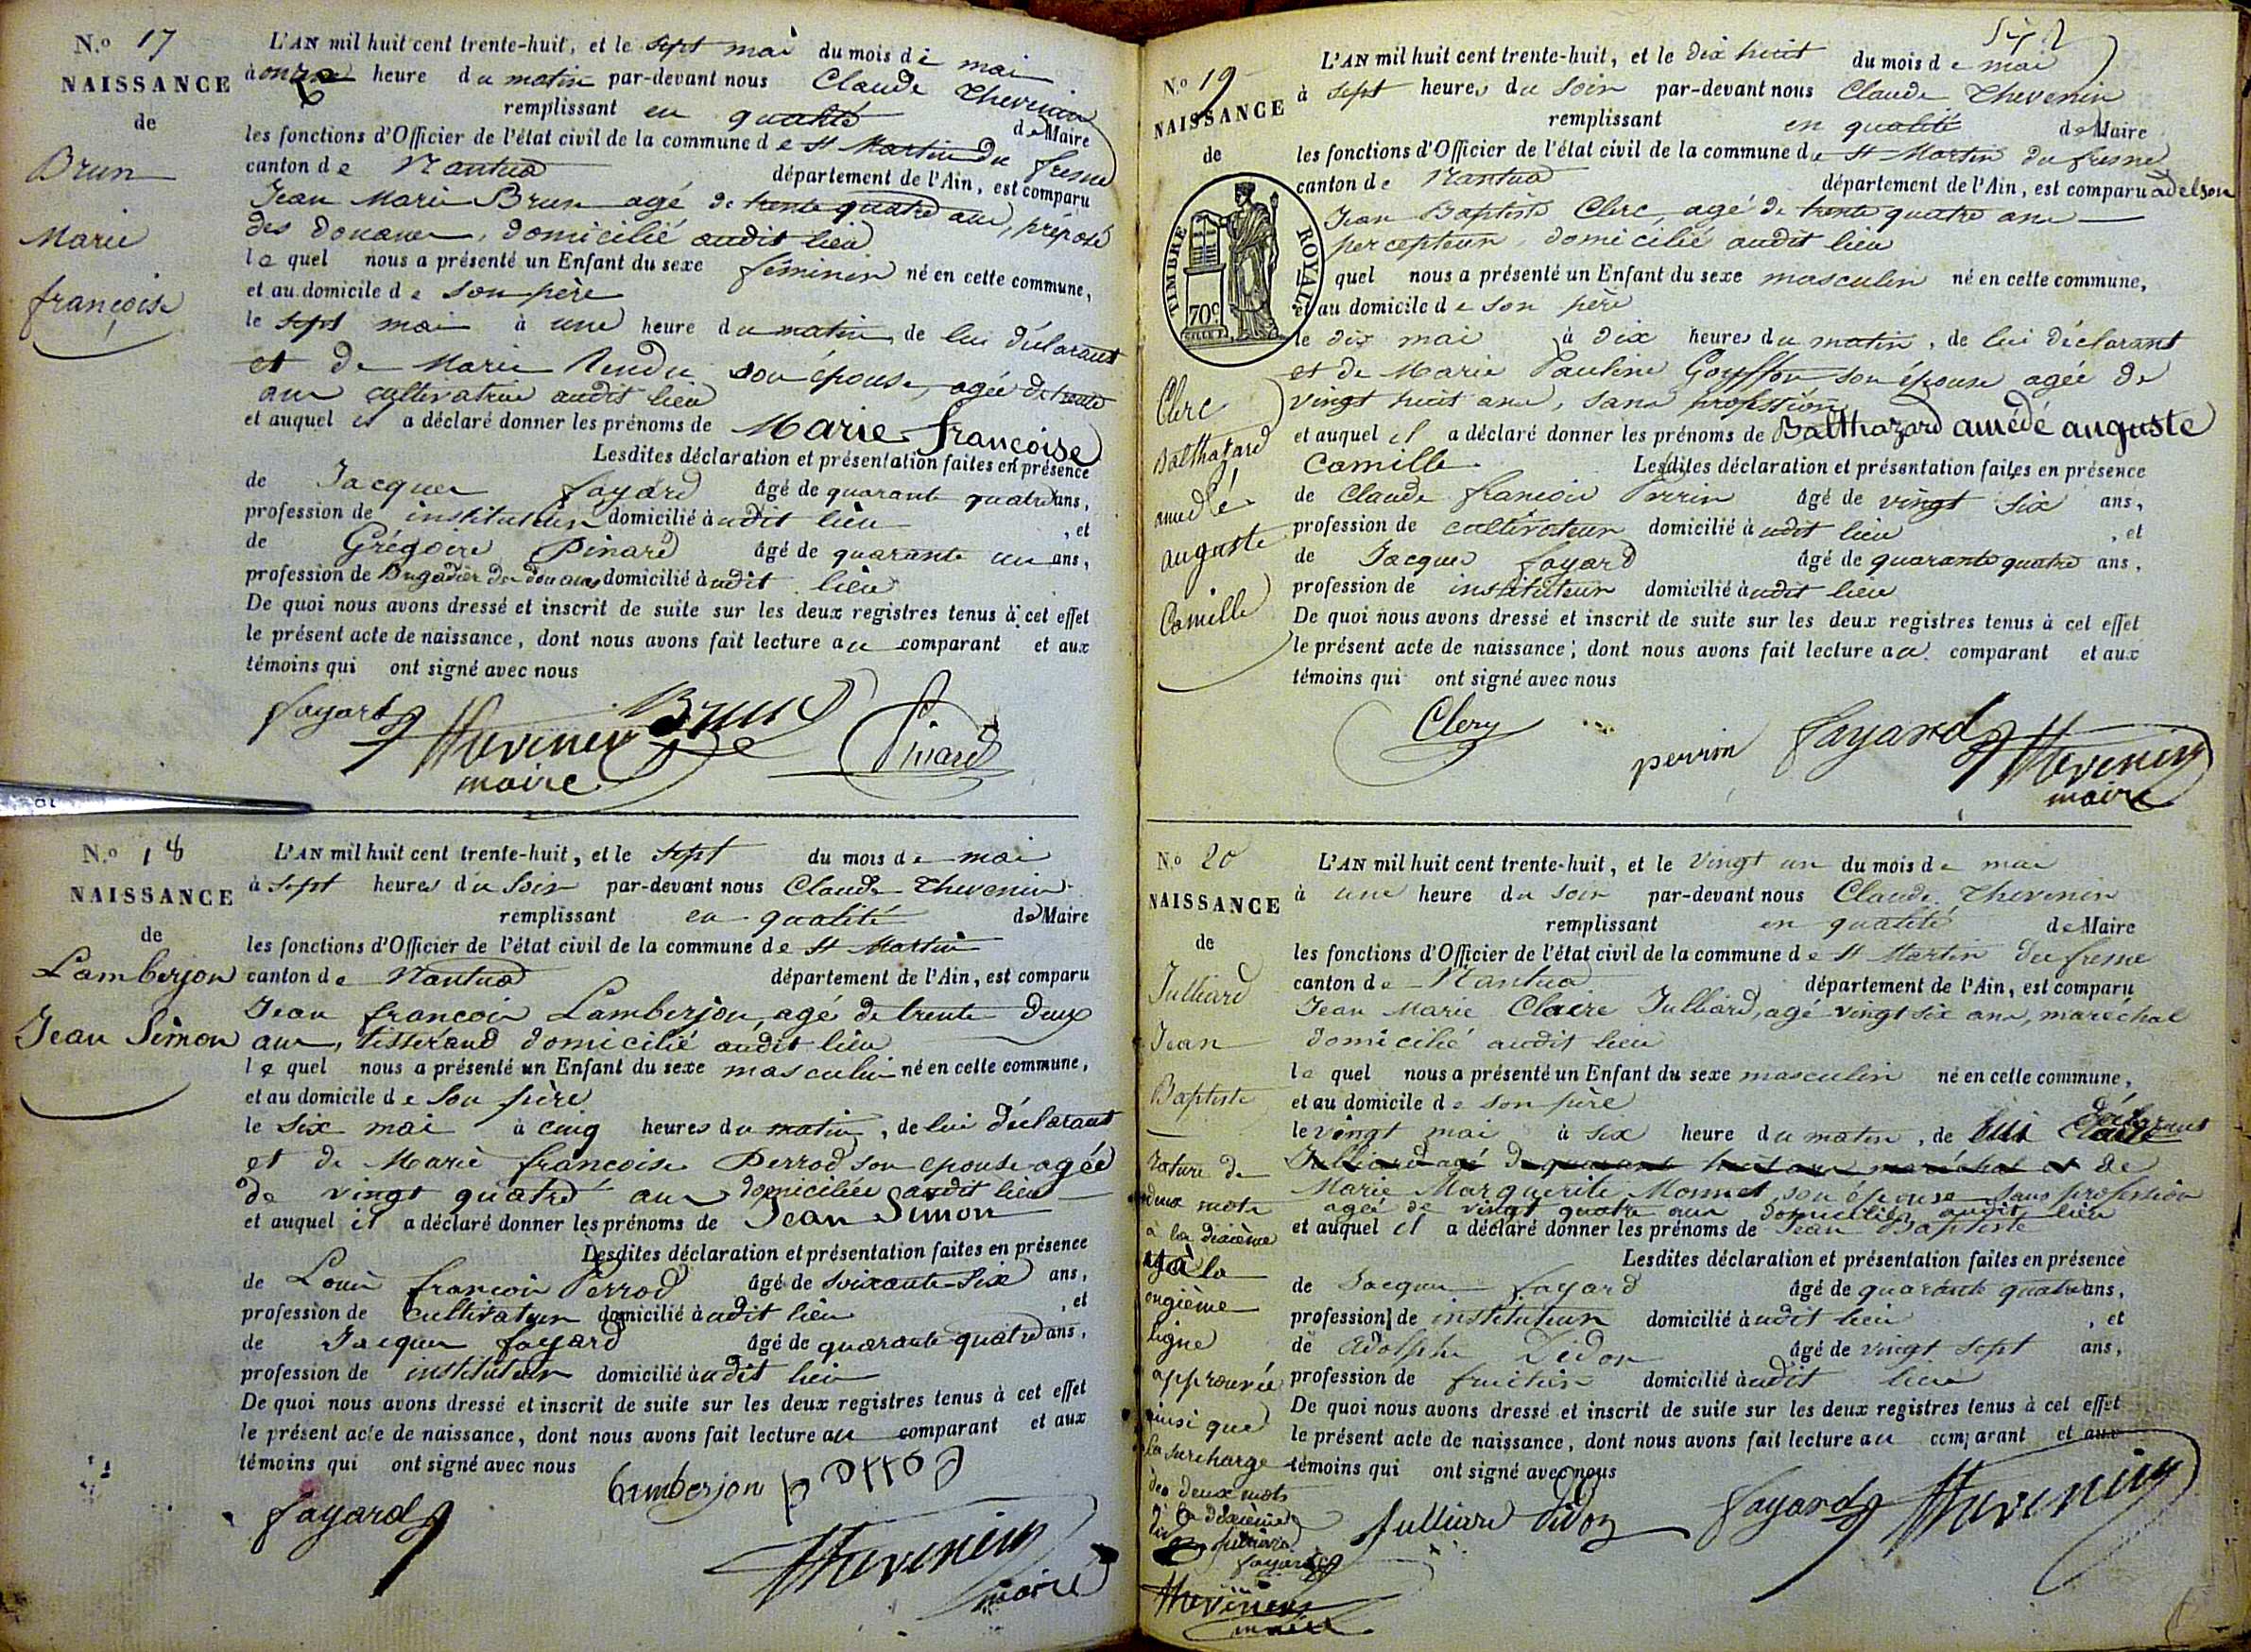 N.o 17
NAISSANCE
de
Brun
Marie
françoise
L'AN mil huit cent trente-huit, et le sept mai du mois de mai
à onze heure du matin par-devant nous Claude Thevenin
remplissant en qualité de Maire
les fonctions d'Officier de l'état civil de la commune de St Martin du fresne
canton de Nantua département de l'Ain, est comparu
Jean Marie Brun agé de trente quatre ans, préposé
des douanes, domicilié audit lieu
lequel nous a présenté un Enfant du sexe féminin né en cette commune,
et au domicile de son père
le sept mai à une heure du matin, de lui déclarant
et de Marie Rendu son épouse, agée de trente
ans cultivatrice audit lieu
et auquel il a déclaré donner les prénoms de Marie françoise
Lesdites déclaration et présentation faites en présence
de Jacques fayard âgé de quarante quatre ans,
profession de instituteur domicilié audit lieu , et
de Grégoire Pinard âgé de quarante un ans,
profession de Brigadier des douanes domicilié audit lieu
De quoi nous avons dressé et inscrit de suite sur les deux registres tenus à cet effet
le présent acte de naissance, dont nous avons fait lecture au comparant et aux
témoins qui ont signé avec nous
fayard Brun Pinard
Thevenin
maire
N.o 18
NAISSANCE
de
Lamberjon
Jean Simon
L'AN mil huit cent trente-huit, et le sept du mois de mai
à sept heures du soir par-devant nous Claude Thevenin
remplissant en qualité de Maire
les fonctions d'Officier de l'état civil de la commune de St Martin
canton de Nantua département de l'Ain, est comparu
Jean françois Lamberjon, agé de trente deux
ans, tisserand domicilié audit lieu
lequel nous a présenté un Enfant du sexe masculin né en cette commune,
et au domicile de son père
le six mai à cinq heures du matin, de lui déclarant
et de Marie françoise Perrod son epouse agée
de vingt quatre ans domiciliée audit lieu
et auquel il a déclaré donner les prénoms de Jean Simon
Lesdites déclaration et présentation faites en présence
de Louis françois Perrod âgé de soixante-six ans,
profession de cultivateur domicilié audit lieu , et
de Jacques fayard âgé de quarante quatre ans,
profession de instituteur domicilié audit lieu
De quoi nous avons dressé et inscrit de suite sur les deux registres tenus à cet effet
le présent acte de naissance, dont nous avons fait lecture au comparant et aux
témoins qui ont signé avec nous
lamberjon
fayard
Thevenin
maire
N.o 19
NAISSANCE
de
TIMBRE ROYAL
70c
Clerc
Balthazard
amédé
auguste
Camille
L'AN mil huit cent trente-huit, et le dix huit du mois de mai
à sept heures du soir par-devant nous Claude Thevenin
remplissant en qualité de Maire
les fonctions d'Officier de l'état civil de la commune de St Martin du fresne
canton de Nantua département de l'Ain, est comparu adelson
Jean Baptiste Clerc, agé de trente quatre ans
percepteur, domicilié audit lieu
quel nous a présenté un Enfant du sexe masculin né en cette commune,
et au domicile de son père
le dix mai à dix heures du matin, de lui déclarant
et de Marie Pauline Gouffon son épouse agée de
vingt huit ans, sans profession
et auquel il a déclaré donner les prénoms de Balthazard amédé auguste
Camille Lesdites déclaration et présentation faites en présence
de Claude françois Perrin âgé de vingt six ans,
profession de cultivateur domicilié audit lieu , et
de Jacques fayard âgé de quarante quatre ans,
profession de instituteur domicilié audit lieu
De quoi nous avons dressé et inscrit de suite sur les deux registres tenus à cet effet
le présent acte de naissance, dont nous avons fait lecture au comparant et aux
témoins qui ont signé avec nous
Clerc perrin fayard Thevenin
maire
N.o 20
NAISSANCE
de
Julliard
Jean
Baptiste
rature de
deux mots
à la dixième
et à la
onzième
ligne
approuvée
ainsi que
la surcharge
des deux mots
à la dixième
fayard
Thevenin
maire
L'AN mil huit cent trente-huit, et le vingt un du mois de mai
à une heure du soir par-devant nous Claude Thevenin
remplissant en qualité de Maire
les fonctions d'Officier de l'état civil de la commune de St Martin du fresne
canton de Nantua département de l'Ain, est comparu
Jean Marie Claire Julliard, agé vingt six ans, maréchal
domicilié audit lieu
lequel nous a présenté un Enfant du sexe masculin né en cette commune,
et au domicile de son père
le vingt mai à six heure du matin, de lui déclarant
Julliard agé de quarante huit ans maréchal et de
Marie Marguerite Monnet, son épouse sans profession
agée de vingt quatre ans domiciliés audit lieu
et auquel il a déclaré donner les prénoms de Jean Baptiste
Lesdites déclaration et présentation faites en présence
de Jacques fayard âgé de quarante quatre ans,
profession de instituteur domicilié audit lieu , et
de Adolphe Didon âgé de vingt sept ans,
profession de domicilié audit lieu
De quoi nous avons dressé et inscrit de suite sur les deux registres tenus à cet effet
le présent acte de naissance, dont nous avons fait lecture au comparant et aux
témoins qui ont signé avec nous
Julliard didon fayard Thevenin